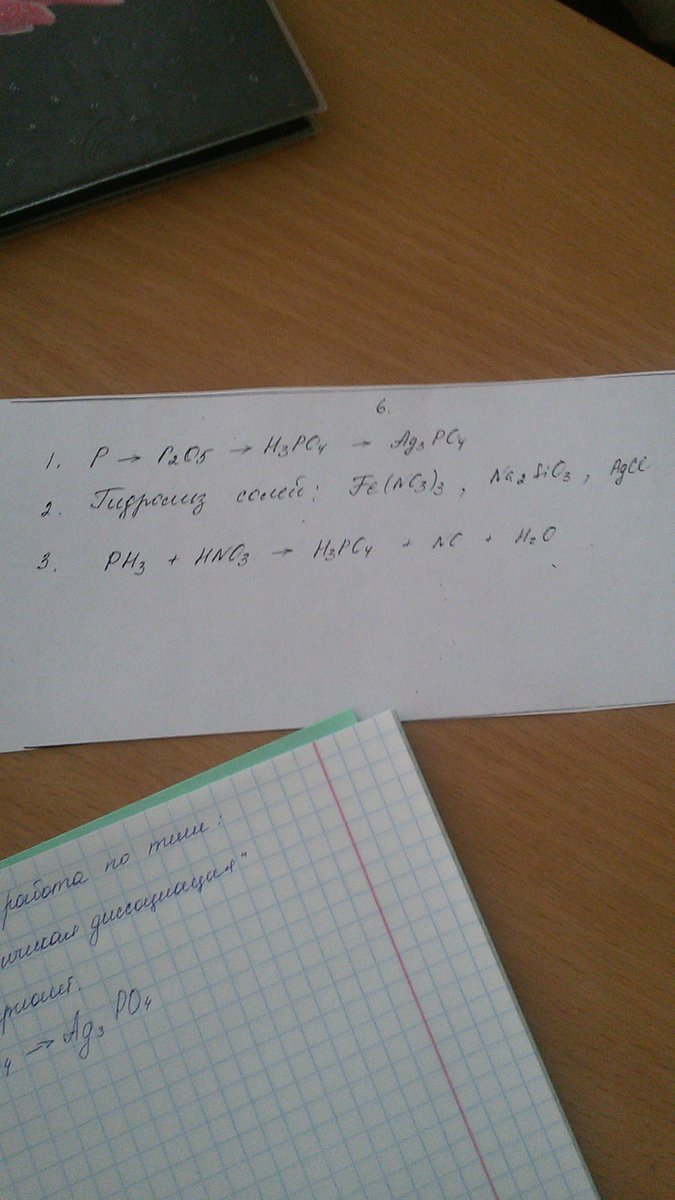 6.
1. P → P₂O₅ → H₃PO₄ → Ag₃PO₄
2. Гидролиз солей: Fe(NO₃)₃, Na₂SiO₃, AgCl
3. PH₃ + HNO₃ → H₃PO₄ + NO + H₂O
работа по теме:
ическая диссоциация"
ариант.
₄ → Ag₃PO₄